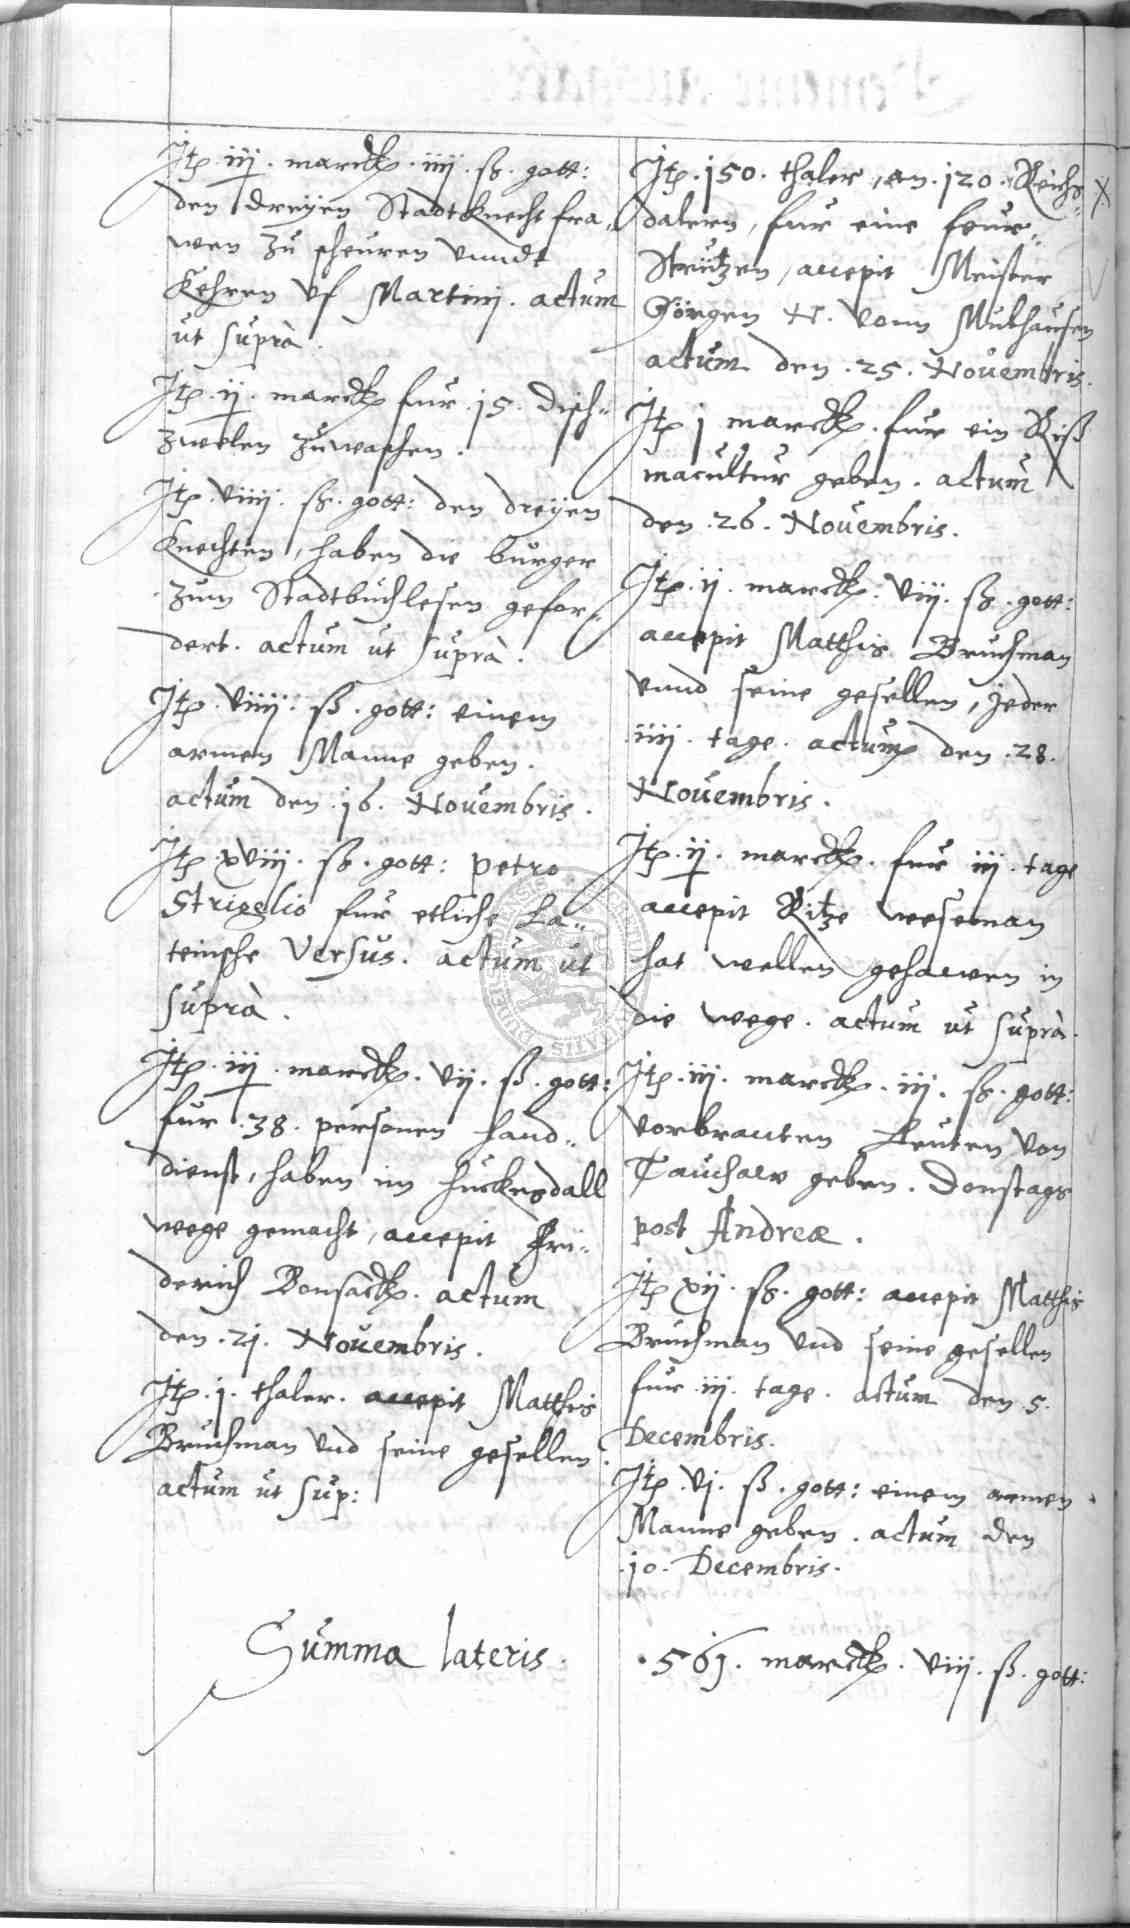 Itp. iij. marck. iiij. ß. gott:
den dreyen Stadtknecht fra-
wen zu scheuren vnndt
Kehren vf Martinj. actum
ut suprà.
Itp. ij. marck fur .15. disch-
zwelen zuwaschen.
Itp. viiij. ß. gott: den dreyen
Knechten, haben die burger
zum Stadtbuchlesen gefor-
dert. actum ut suprà.
Itp. viiij. ß. gott: einem
armen Manne geben.
actum den .16. Novembris.
Itp. xviij. ß. gott: Petro
Strigelio fur etliche La-
teinische Versus. actum ut
suprà.
Itp. iij. marck. vij. ß. gott:
fur .38. personen hand-
dienst, haben im huckesdall
wege gemacht, accepit Fri-
derich Bonsack. actum
den .21. Novembris.
Itp. j. thaler. accepit Matthis
Bruchman vnd seine gesellen.
actum ut sup:
Itp. 150. thaler, an .120. Reichs-
dalern, fur eine feur-
Strützen, accepit Meister
Görgen N. vonn Mulhausen
actum den .25. Novembris.
Itp j marck. fur ein Riß
macultur geben. actum
den .26. Novembris.
Itp. ij. marck. viij. ß. gott:
accepit Matthis Bruchman
vnnd seine gesellen, jeder
iiij. tage. actum den .28.
Novembris.
Itp. ij. marck. fur iij. tage
accepit Ritze weseman
hat wellen gehawen in
die wege. actum ut suprà.
Itp. iij. marck. iij. ß. gott:
vorbranten Leuten von
Tauchaw geben. Donstags
post Andreæ.
Itp xij. ß. gott: accepit Matthis
Bruchman vnd seine gesellen
fur iij. tage. actum den 5.
Decembris.
Itp. vj. ß. gott: einem armen
Manne geben. actum den
.10. Decembris.
Summa lateris. .561. marck. viij. ß. gott: